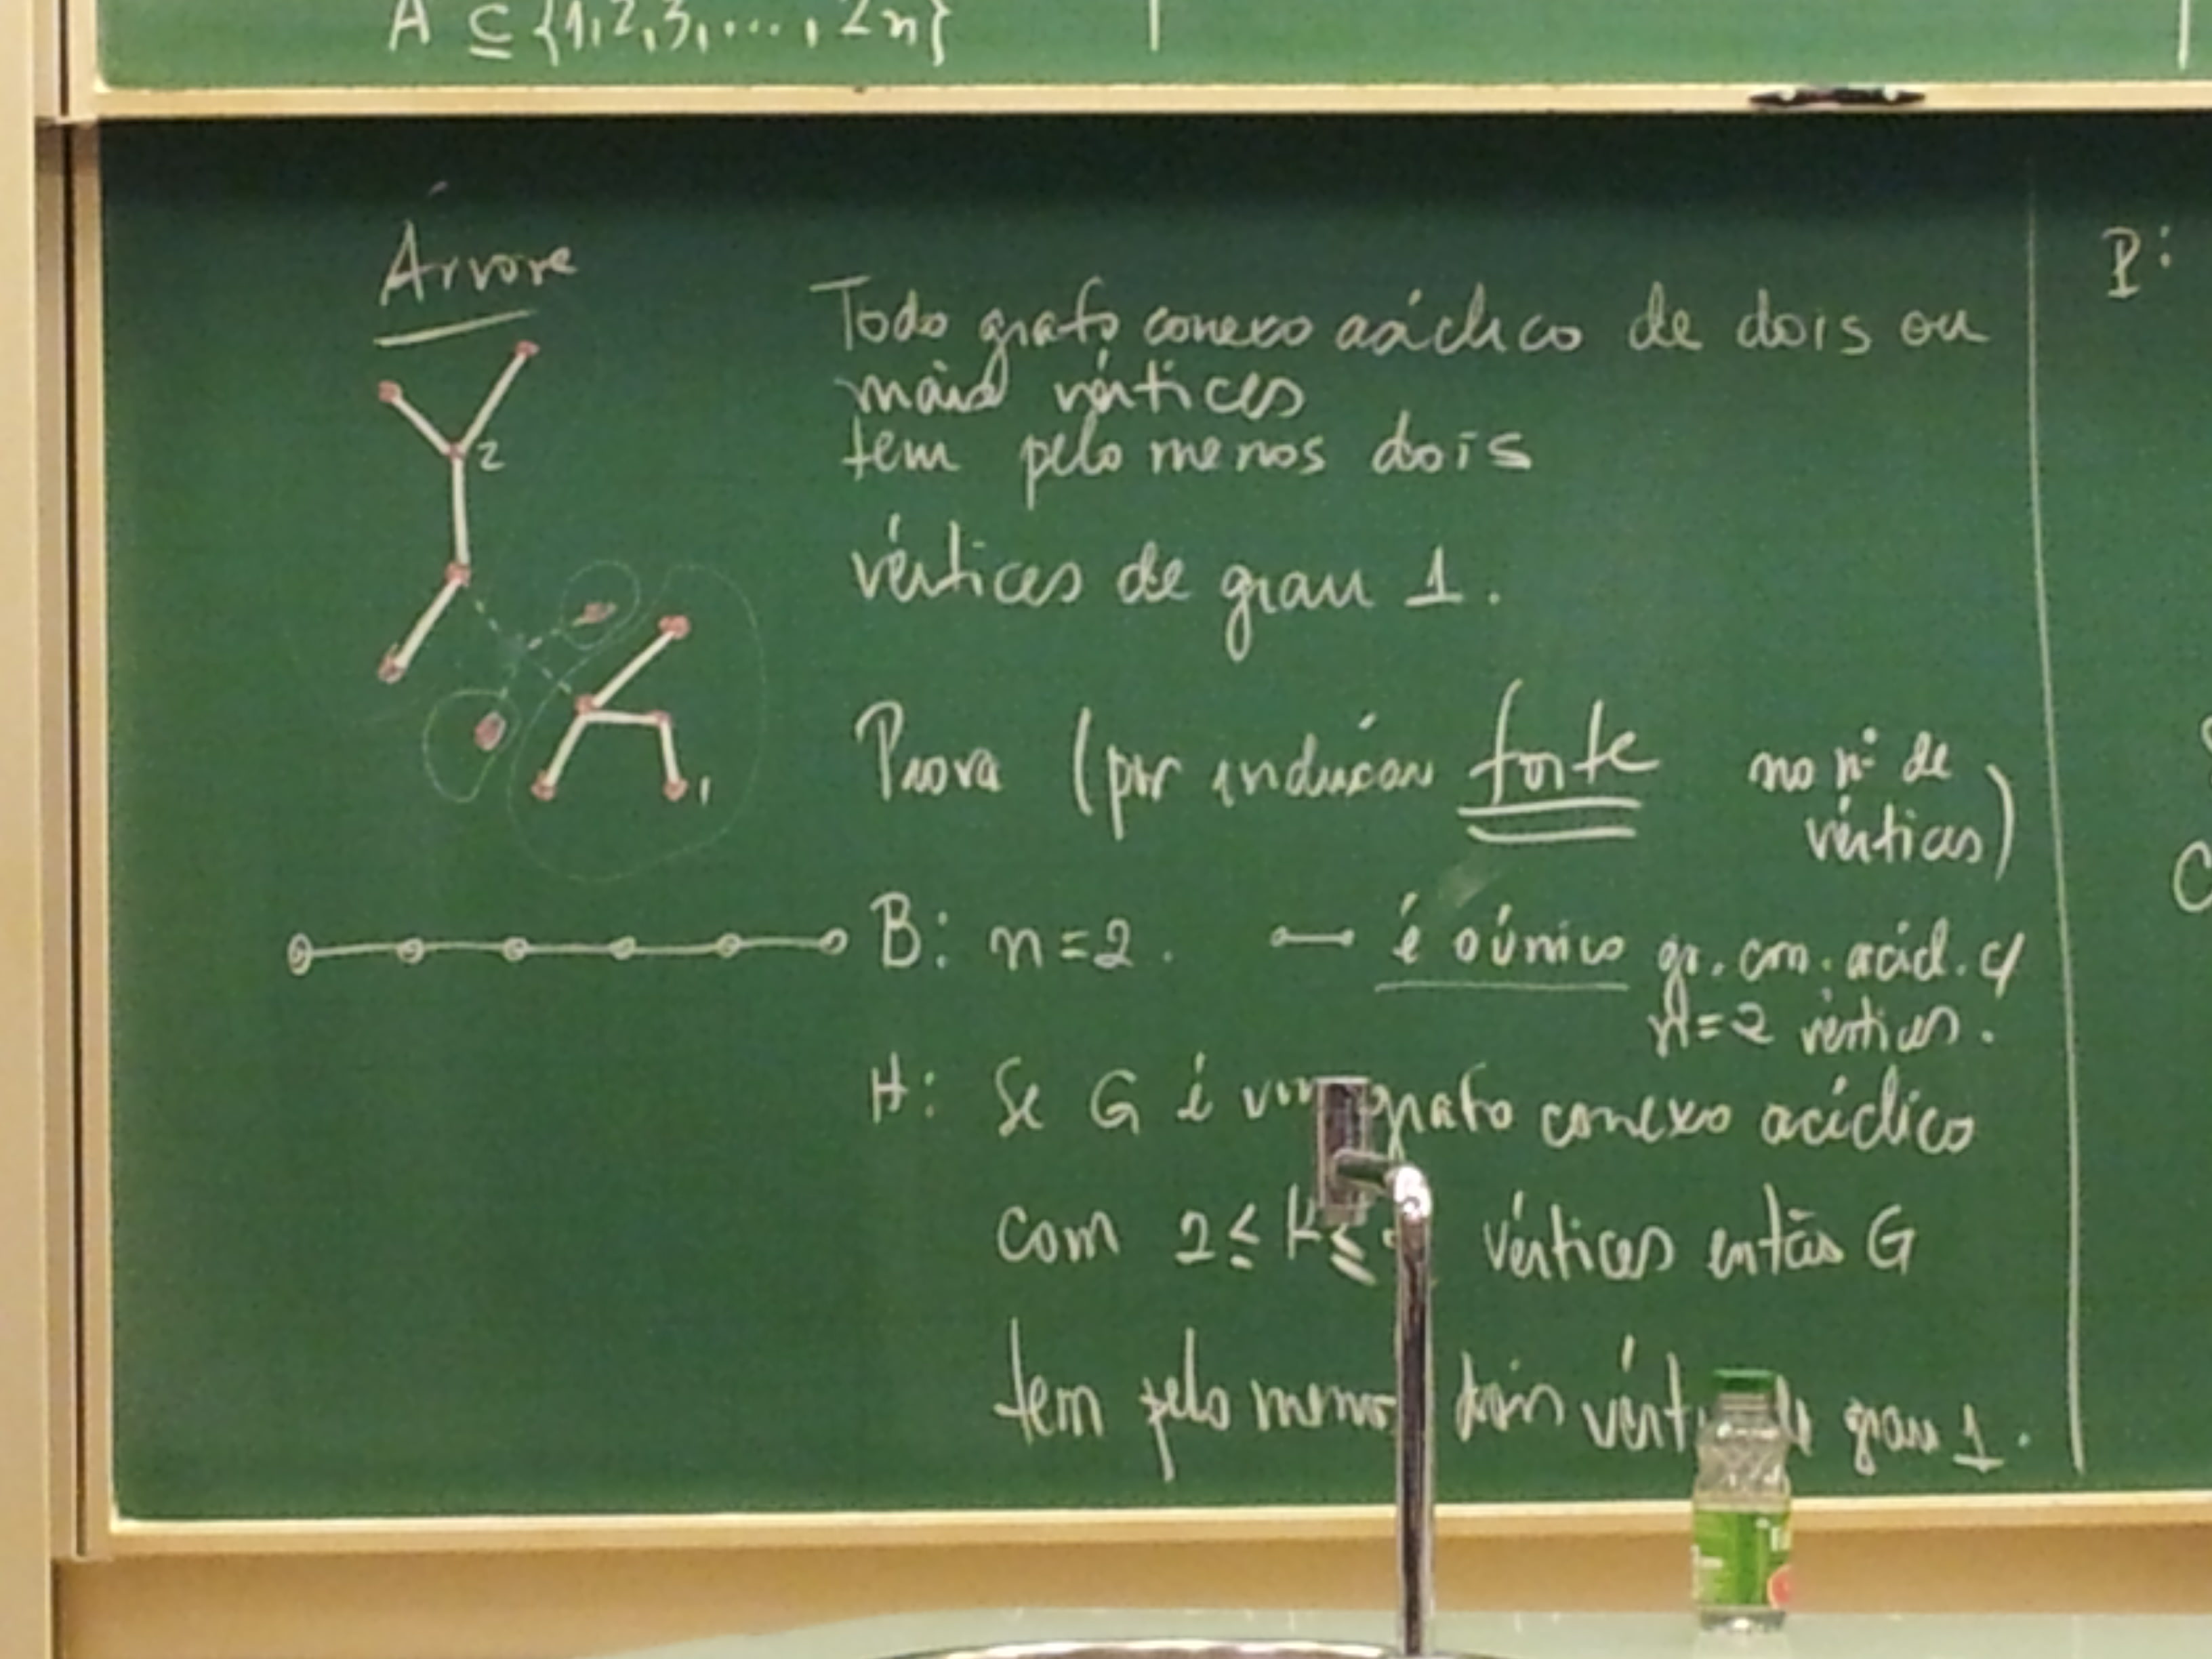 A ⊆ {1,2,3,...., 2n}
Árvore
2
1
Todo grafo conexo acíclico de dois ou
mais vértices
tem pelo menos dois
vértices de grau 1.
Prova (por indução forte no nº de
vértices)
B: n=2. é o único gr. con. acícl. c/
n=2 vértices.
H: Se G é um grafo conexo acíclico
com 2 ≤ k ≤ vértices então G
tem pelo menos dois grau 1.
P: